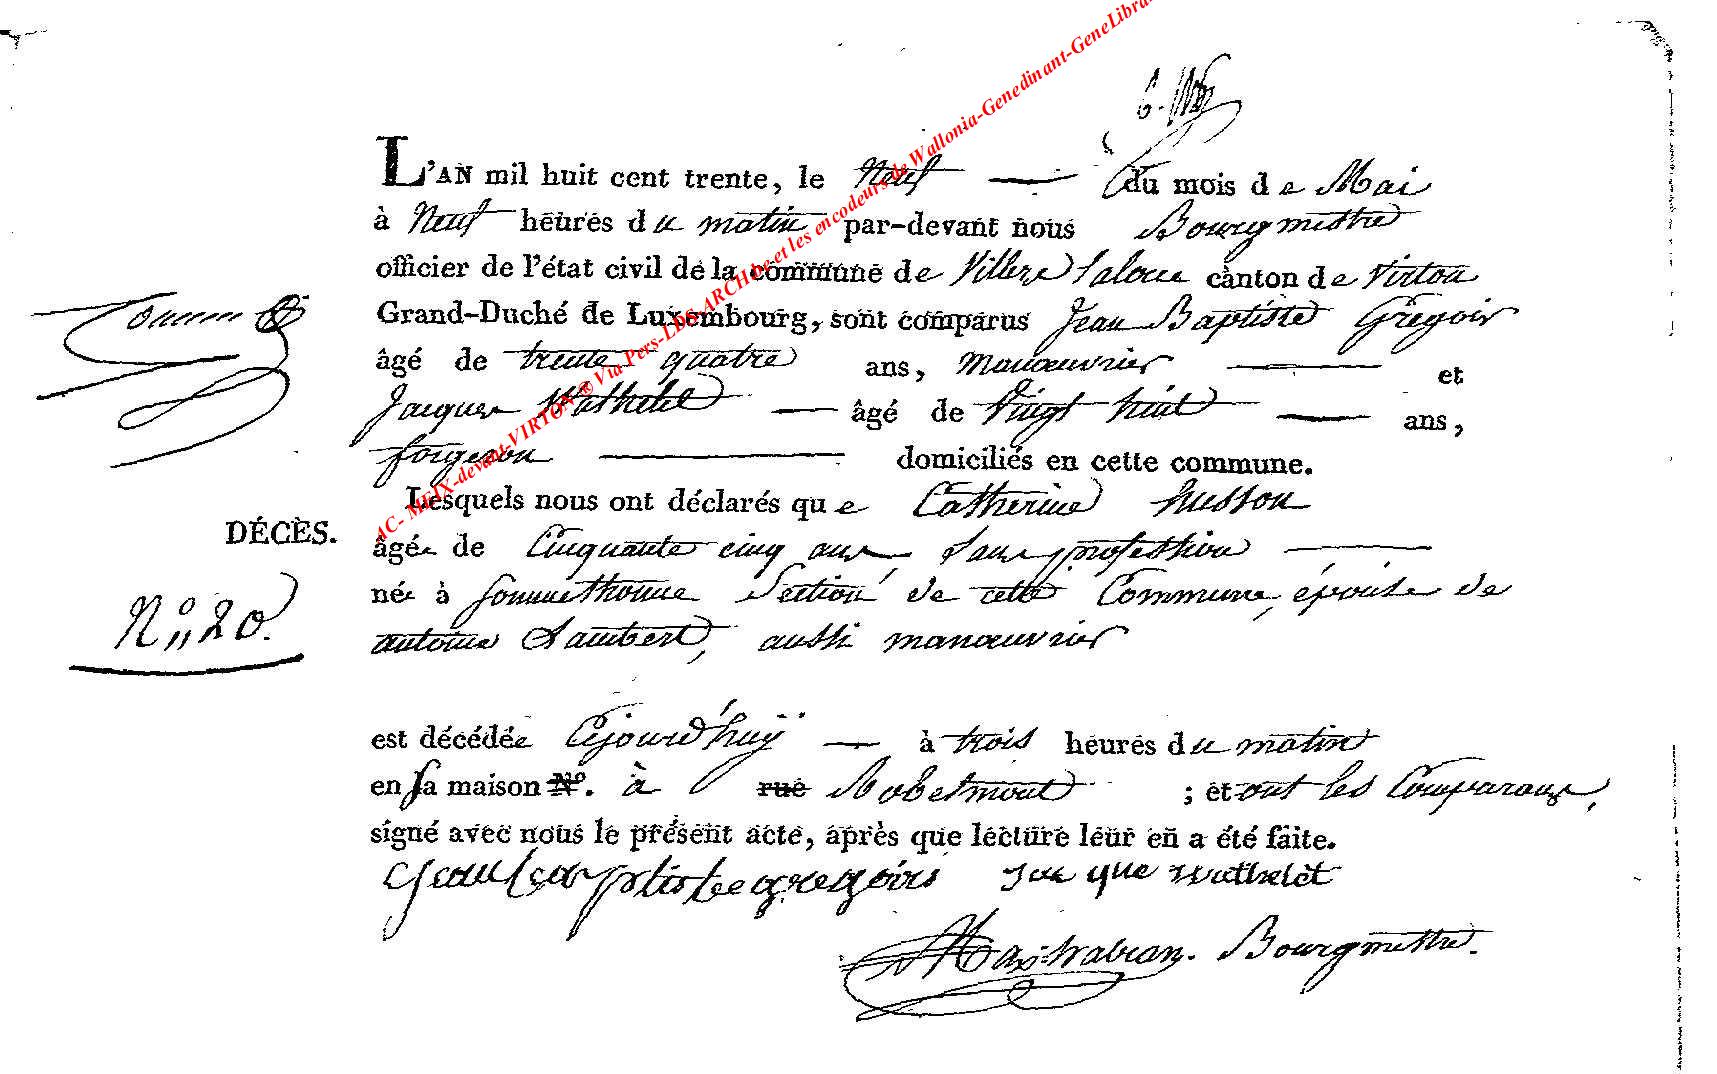 L'AN mil huit cent trente, le Neuf — du mois de Mai
à Neuf heures du matin par-devant nous Bourgmestre
officier de l'état civil de la commune de Villers Laloue canton de Virton
Grand-Duché de Luxembourg, sont comparus Jean Baptiste Gregoir
âgé de trente quatre ans, manœuvrier — et
Jacques Wathelet — âgé de Vingt huit — ans,
forgeron — domiciliés en cette commune.
Lesquels nous ont déclarés que Catherine husson
DÉCÈS.
âgée de Cinquante cinq ans, sans profession —
née à Sommethonne Section de cette Commune, épouse de
N° 20.
antoine Lambert, aussi manœuvrier
est décédée Cejourd'huÿ — à trois heures du matin
en sa maison N°. à rue Robelmont ; et ont les Comparans,
signé avec nous le présent acte, après que lecture leur en a été faite.
Jean baptiste gregoirs Jacque wathelet
Bourgmestre.
AC- MEIX-devant-VIRTON ® Via Pers-LDS-ARCH be et les encodeurs de Wallonia-Genedinant-GeneLibra